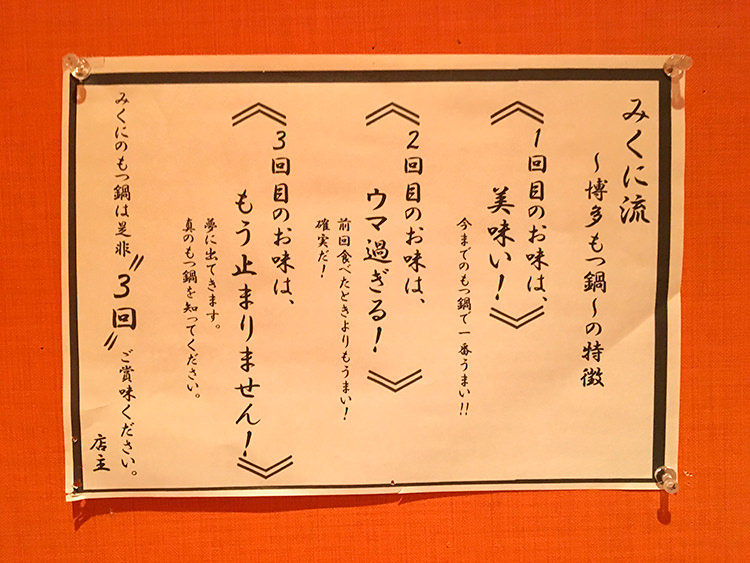 みくに流
～博多もつ鍋～の特徴
《1回目のお味は、
美味い！》
今までのもつ鍋で一番うまい!!
《2回目のお味は、
ウマ過ぎる！》
前回食べたときよりもうまい！
確実だ！
《3回目のお味は、
もう止まりません！》
夢に出てきます。
真のもつ鍋を知ってください。
みくにのもつ鍋は是非〝3回〟ご賞味ください。
店主